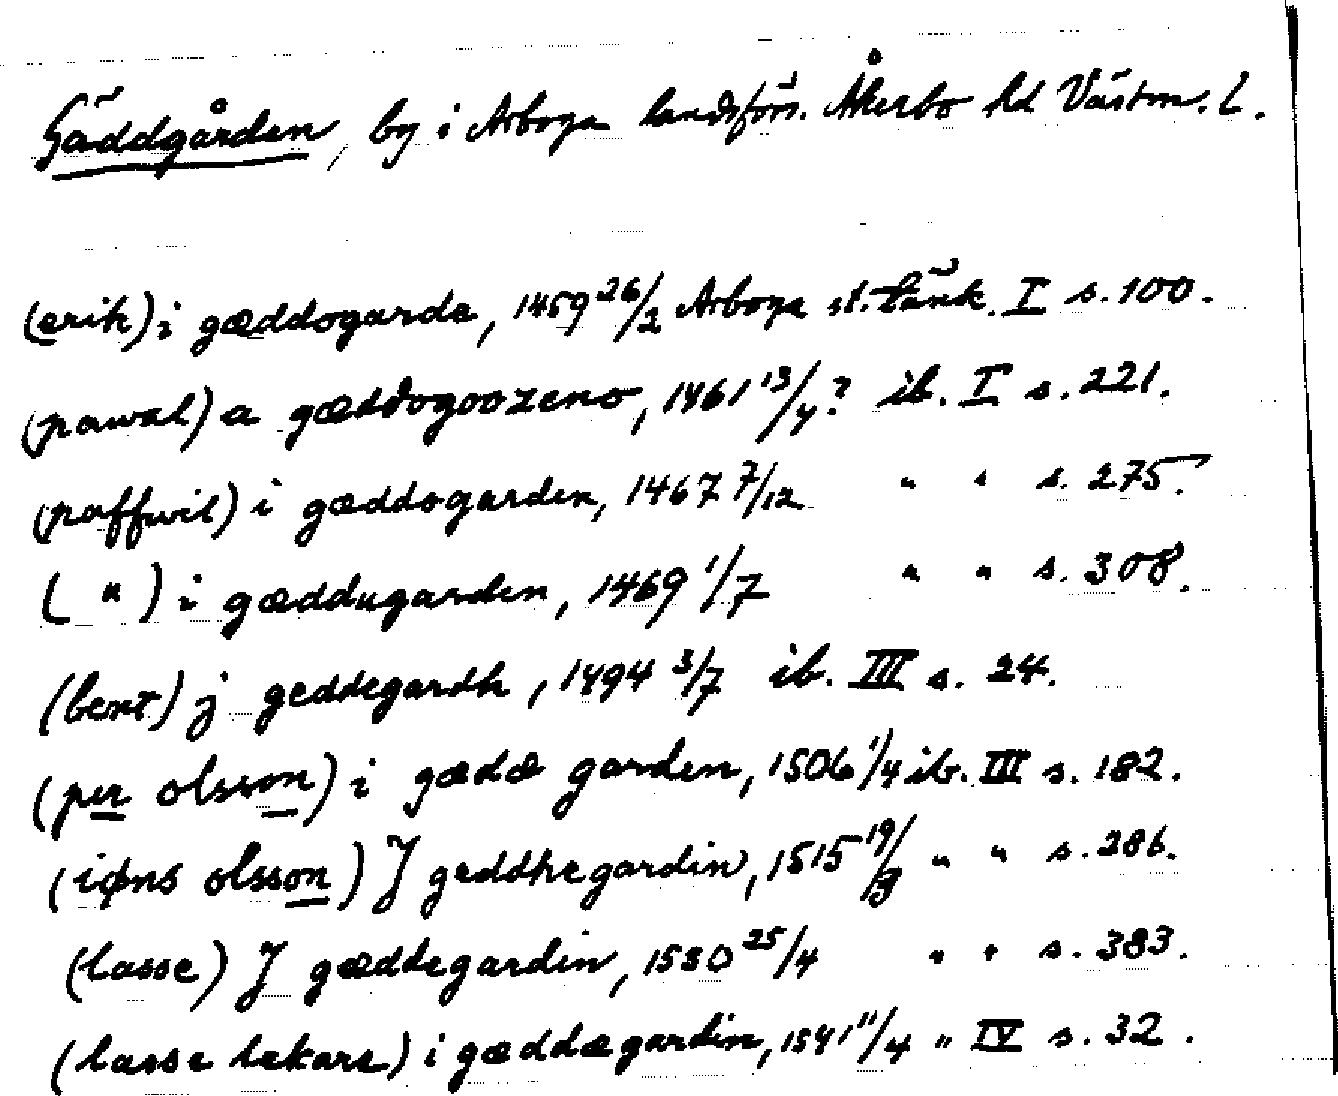 Gäddgården, by i Arboga landsförs. Åkerbo hd Västm. l.
(erik) i gæddogarda, 1459 26/2 Arboga st. tänk. I s. 100.
(pawal) a 1461 13/4? ib. I s. 221.
(paffwil) i gæddogarden, 1467 7/12 " " s. 275.
( " ) i gæddugarden, 1469 1/7 " " s. 308.
(bent) j geddegardh, 1494 3/7 ib. III s. 24.
(per olsson) i gædæ garden, 1506 1/4 ib. III s. 182.
(iøns olsson) J geddhegardin, 1515 19/3 " " s. 286.
(lasse) J gæddegardin, 1530 25/4 " " s. 383.
(lasse lekare) i gæddægardin, 1541 11/4 " IV s. 32.